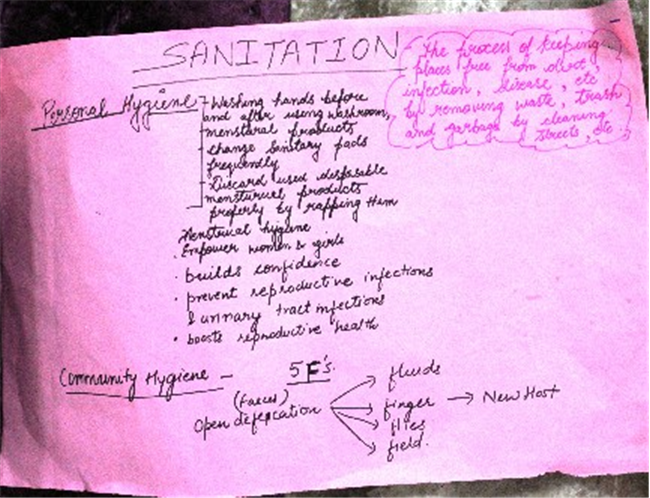 SANITATION
- The process of keeping
places free from dirt,
infection, disease, etc
by removing waste, trash
and garbage by cleaning
streets, etc.
Personal Hygiene - Washing hands before
and after using washroom,
menstural products
- change Sanitary pads
frequently
- Discard used disposable
mensturuel products
properly by rapping them
Menstrual hygiene
• Empower women & girls
• builds confidence
• prevent reproductive infections
& urinary tract infections
• boosts reproductive health
Community Hygiene - 5F's.
(Faeces)
Open defecation
fluids
finger → New Host
flies
field.